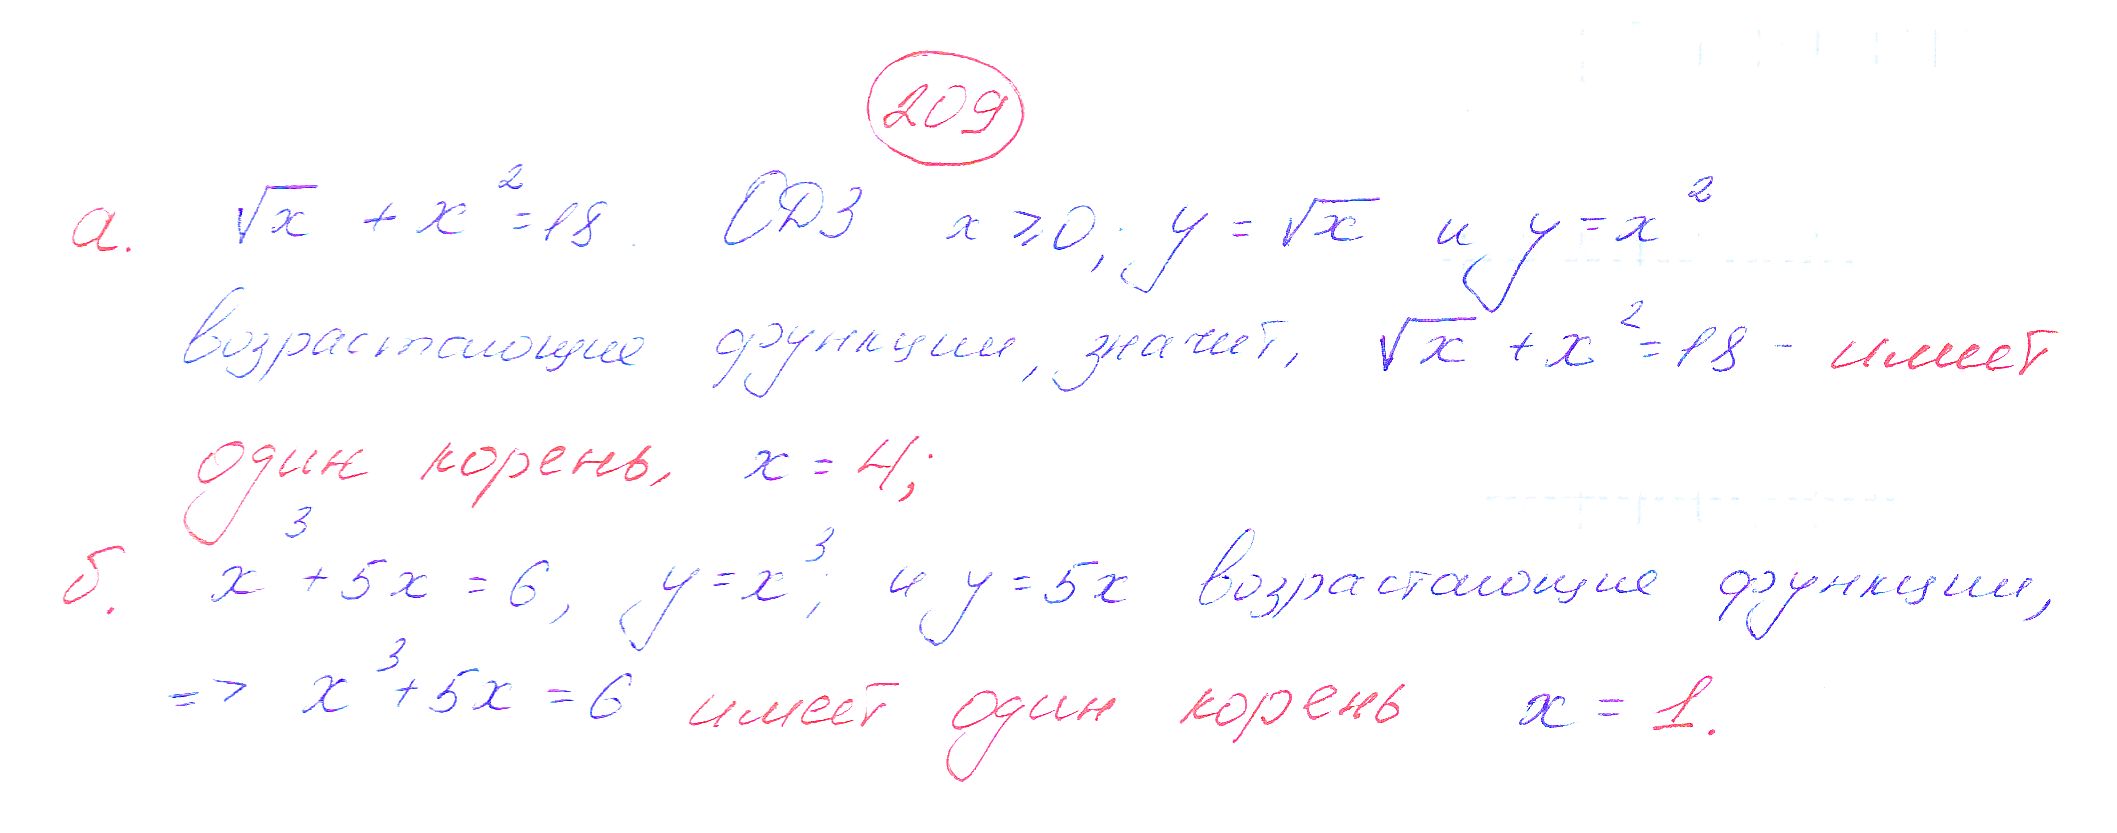 209
а. √x + x² = 18. ОДЗ x ⩾ 0; y = √x и y = x²
возрастающие функции, значит, √x + x² = 18 - имеет
один корень, x = 4;
б. x³ + 5x = 6, y = x³; и y = 5x возрастающие функции,
=> x³ + 5x = 6 имеет один корень x = 1.